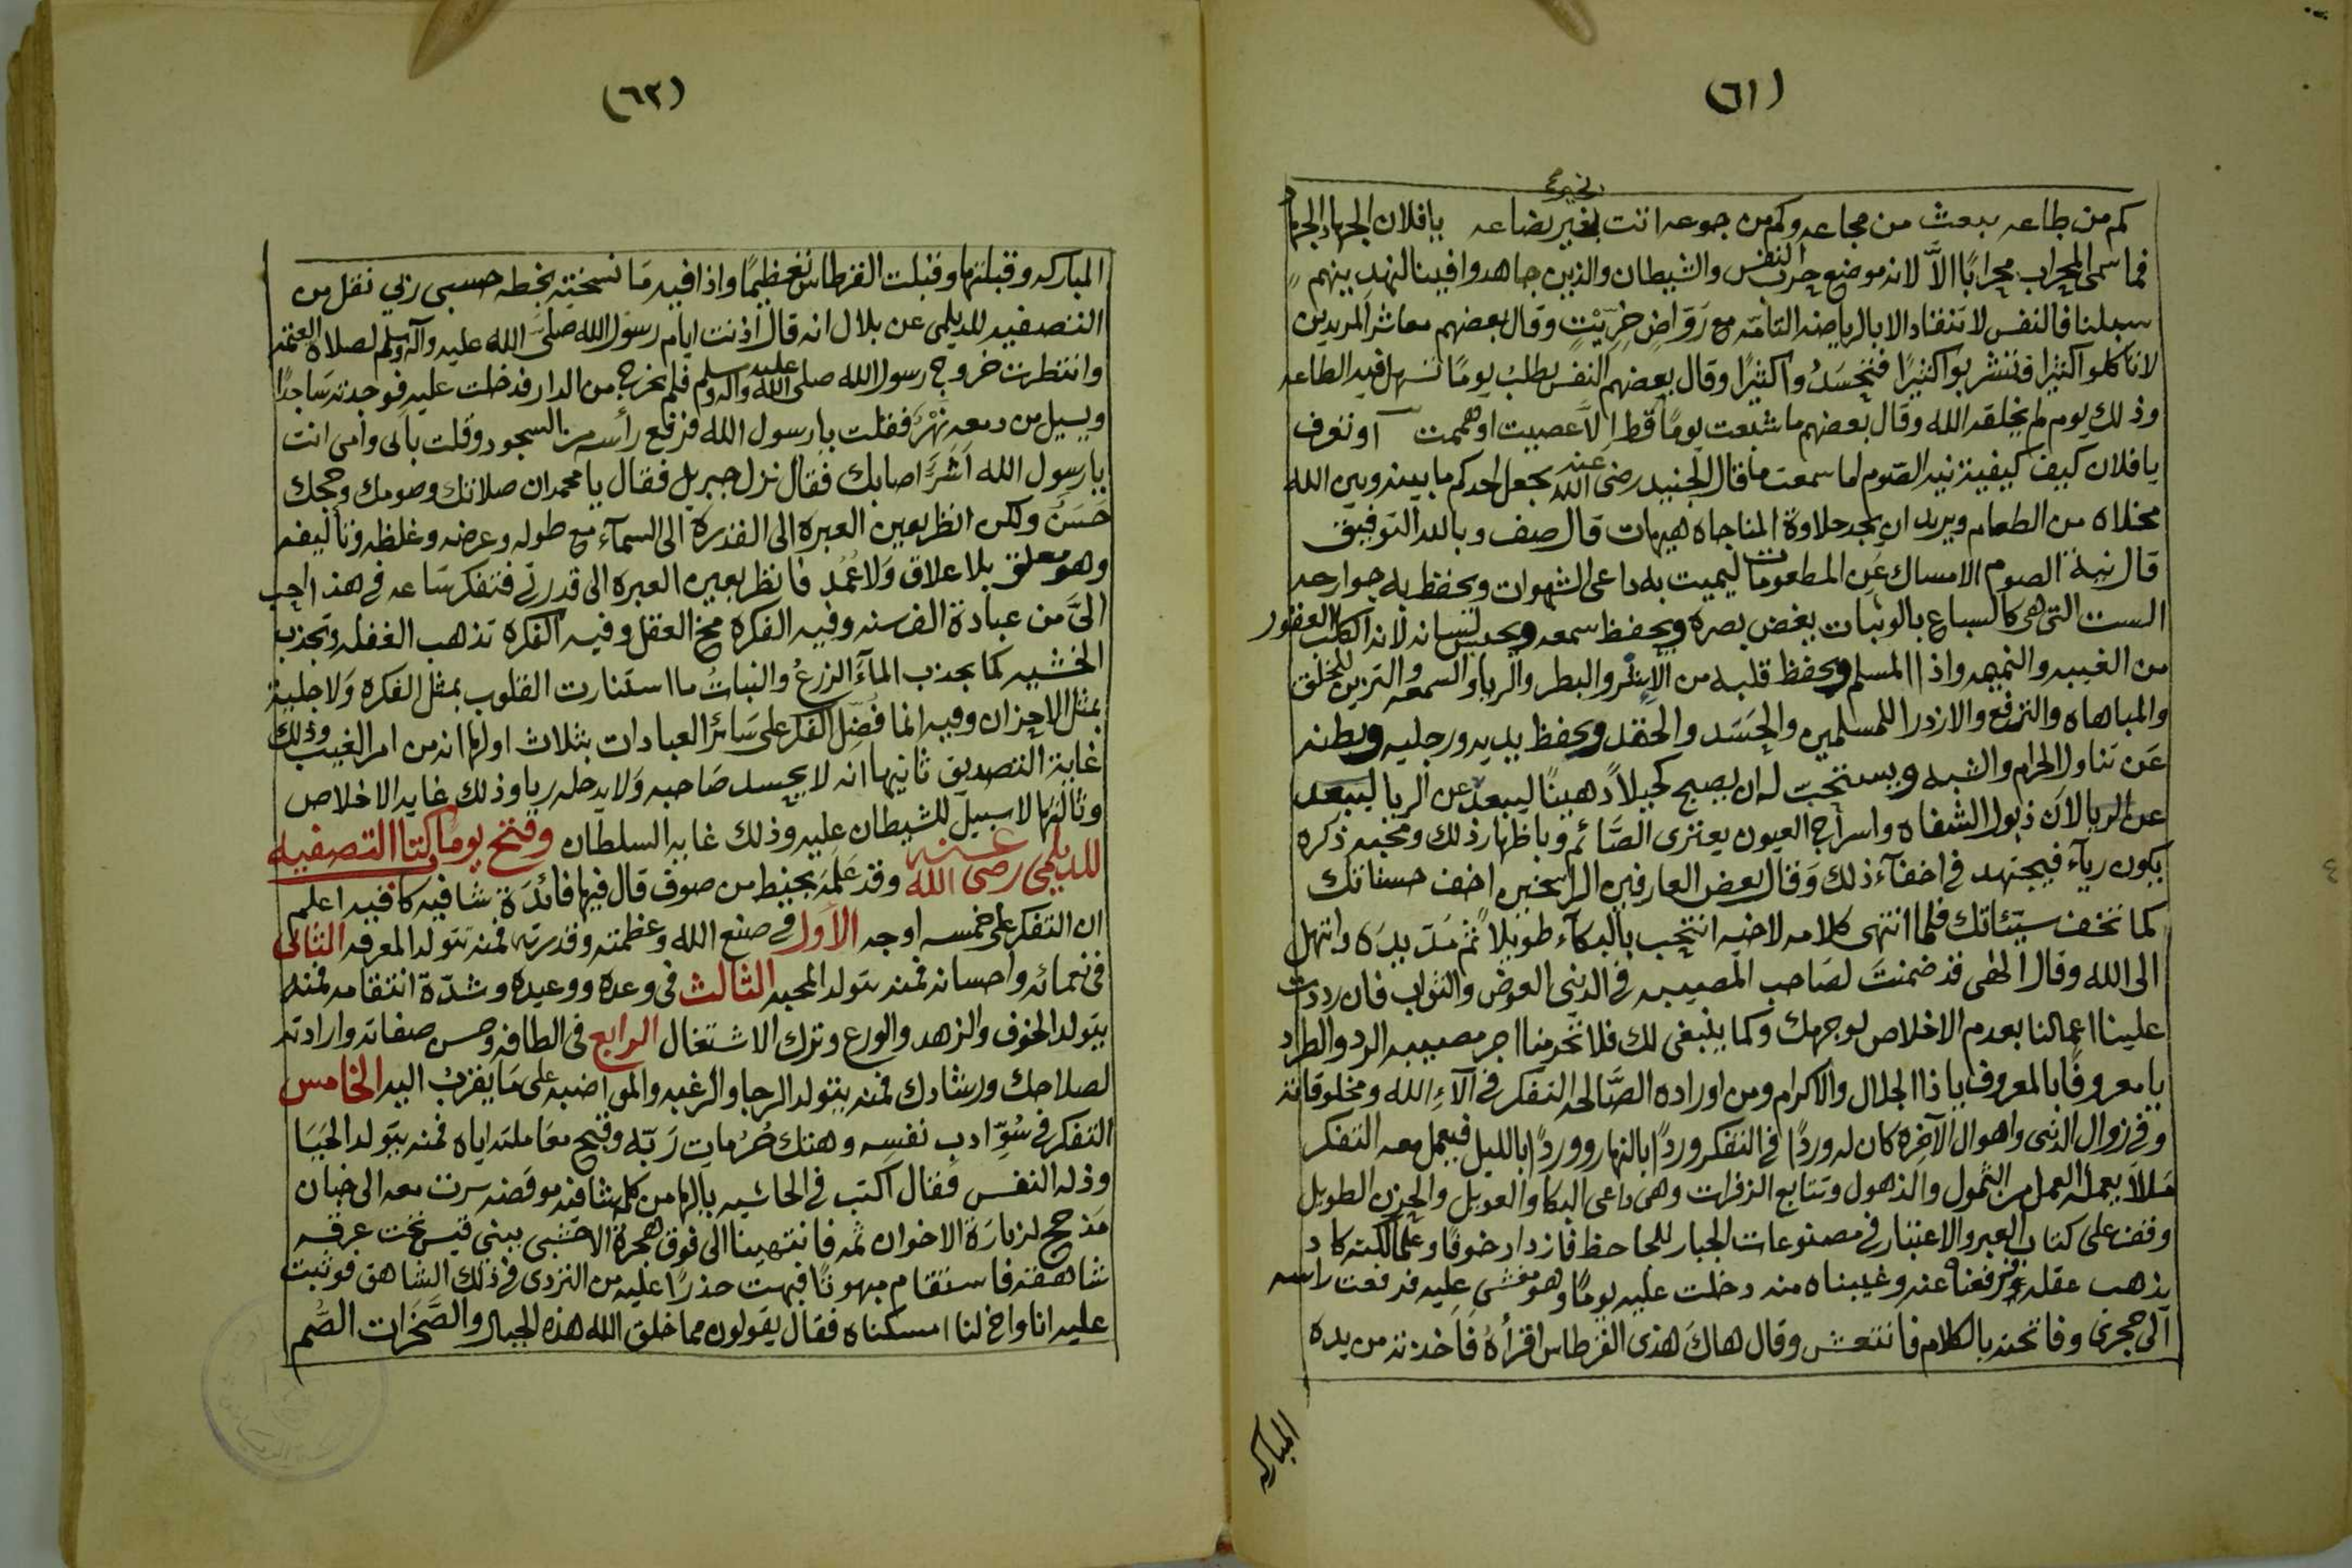 (٦١)
كم من طاعه بعث من مجاعه وكم من جوعه اتت بخير بضاعه يا فلان الجهاد الجهاد
فما سمى المحراب محرابًا الاّ لانه موضع حرب النفس والشيطان والذين جاهدوا فينا لنهدينهم
سبلنا فالنفس لا تنقاد الا بالرياضه التامّه مع رَوّاض خِرّيْتٍ وقال بعضهم معاشر المريدين
لا تاكلوا كثيرا فتشربوا كثيرًا فتخسَدُوا كثيرًا وقال بعضهم النفس تطلب يومًا تسهل فيه الطاعه
وذلك يوم لم يخلقه الله وقال بعضهم ما شبعت يومًا قط إلاّ عصيت او هممت او تعرف
يا فلان كيف كيفية نية الصّوم اما سمعت ما قال الجنيد رضى الله عنه يجعل احدكم ما بينه وبين الله
مخلاه من الطعام ويريد ان يجد حلاوة المناجاه هيهات قال صف وبالله التوفيق
قال نية الصوم الامساك عن المطعومات ليميت به داعى الشهوات ويحفظ به جوارحه
الست التى هى كالسباع بالوثبات يغض بصره ويحفظ سمعه ويحبس لسانه لانه الكلب العقور
من الغيبه والنميمه واذا المسلم ويحفظ قلبه من الاشر والبطر والريا والسمعه والتزين للخلق
والمباهاه والترفع والازدرا للمسلمين والحَسَد والحقد ويحفظ يديه ورجليه وبطنه
عَن تناول الحرام والشبه ويستحب له ان يصبح كحيلاً دهينًا ليبعد عن الريا ليبعد
عن الريا لان ذبول الشفاه واسراج العيون يعتزى الصَّائم وباظهار ذلك ومحبه ذكره
يكون ريآء فيجتهد فى اخفآء ذلك وَقال بعض العارفين الراسخين اخف حسناتك
كما تخف سيّئاتك فلما انتهى كلامه لاخيه انتحب بالبكآء طويلاً ثم مَدّ يدَه وابتهل
الى الله وقال الهى قد ضمنتَ لصَاحب المصيبه فى الدنيى العوض والثواب فان رددت
علينا اعمالنا بعدم الاخلاص لوجهك وكما ينبغى لك فلا تحرمنا اجر مصيبه الرد والطراد
يا معروفًا بالمعروف يا ذا الجلال والاكرام ومن اوراده الصَّالحه التفكر فى آلآءِ الله ومخلوقاته
وفى زوال الدنيى واهوال الآخره كان له وردًا فى التفكر وردًا بالنهار ووردًا بالليل فيعمل معه التفكر
مَللاً يعمله العمل من الثمول والذهول وتتابع الزفرات وهى داعى البكا والعويل والحزن الطويل
وقف على كتاب العبر والاعتبار فى مصنوعات الجبار للجاحظ فازداد خوفًا وغمًا لكنه كاد
يذهب عقله فرفعناه عنه وغيبناه منه دخلت عليه يومًا وهو مغشى عليه فرفعت راسه
الى حجرى وفاتحته بالكلام فانتعش وقال هاك هذى القرطاس اقرأهُ فاخذته من يده
المباركه
(٦٢)
المباركه وقبلتها وقبلت القرطاس تعظيمًا واذا فيه مَا نسخته بخطه حسبى ربى نقل من
التصفيه للديلمى عن بلال انه قال اذنت ايام رسول الله صلى الله عليه وآله وسلم لصلاه العتمه
وانتظرت خروج رسول الله صلى الله عليه وآله وسلم فلم يخرج من الدار فدخلت عليه فوجدته سَاجدًا
ويسيل من دمعه نَهْرٌ فقلت يا رسول الله فرفع رأسه من السجود وقلت بابى وامى انت
يا رسول الله اشرًّا اصابك فقال نزل جبريل فقال يا محمد ان صلاتك وصومك وحجك
حَسَنٌ ولكن انظر بعين العبره الى القدرة الى السمآء مع طوله وعرضه وغلظه وتأليفه
وهو معلق بلا علاق وَلا عُمُد فانظر بعين العبره الى قدرتى فتفكر سَاعه فى هذا احب
الىَّ من عبادة الف سنه وفيه الفكرة مخ العقل وفيه الفكره تذهب الغفله وتجذب
الخشيه كما يجذب المآءُ الزرعَ والنباتَ ما استنارت القلوب بمثل الفكره وَلا جليت
بمثل الاحزان وفيه انما فُضِّل الفكر على سَائر العبادات بثلاث اولها انه من امر الغيب وذلك
غاية التصديق ثانيها انه لا يحسد صَاحبه وَلا يدخله ريا وذلك غايه الاخلاص
وثالثها لا سبيل للشيطان عليه وذلك غايه السلطان وفتح يومًا كتاب التصفيه
للديلمى رضى الله عنه وقد عَلمَه بخيط من صوف قال فيها فائدَة شافيه كافيه اعلم
ان التفكر على خمسه اوجه الأول فى صنع الله وعظمته وقدرته فمنه تتولد المعرفه الثانى
فى نعمائه واحسانه فمنه يتولد المحبه الثالث فى وعده ووعيده وشدّة انتقامه فمنه
يتولد الخوف والزهد والورع وترك الاشتغال الرابع فى الطافه وحسن صفاته وارادته
لصلاحك ورشادك فمنه يتولد الرجا والرغبه والمواضبه على مَا يقربُ اليه الخامس
التفكر فى سُوِّ ادب نفسِه وهتك حُرُمات رَبّه وقبح معَاملته اياه فمنه يتولد الحَيَا
وذله النفس فقال اكتب فى الحاشيه يالها من كلمة شافيه موقضه سرت معه الى خبان
مَذحج لزيارَة الاخوان ثمه فانتهينا الى فوق هجرة الاخشبى ببنى قيس تحت عرقه
شاهقه فاستقام مبهوتًا فبهت حذرًا عليه من التردى فى ذلك الشاهق فوثبت
عليه انا واخ لنا امسكناه فقال يقولون مما خلق الله هذه الجبال والصَّخَرات الصُّم